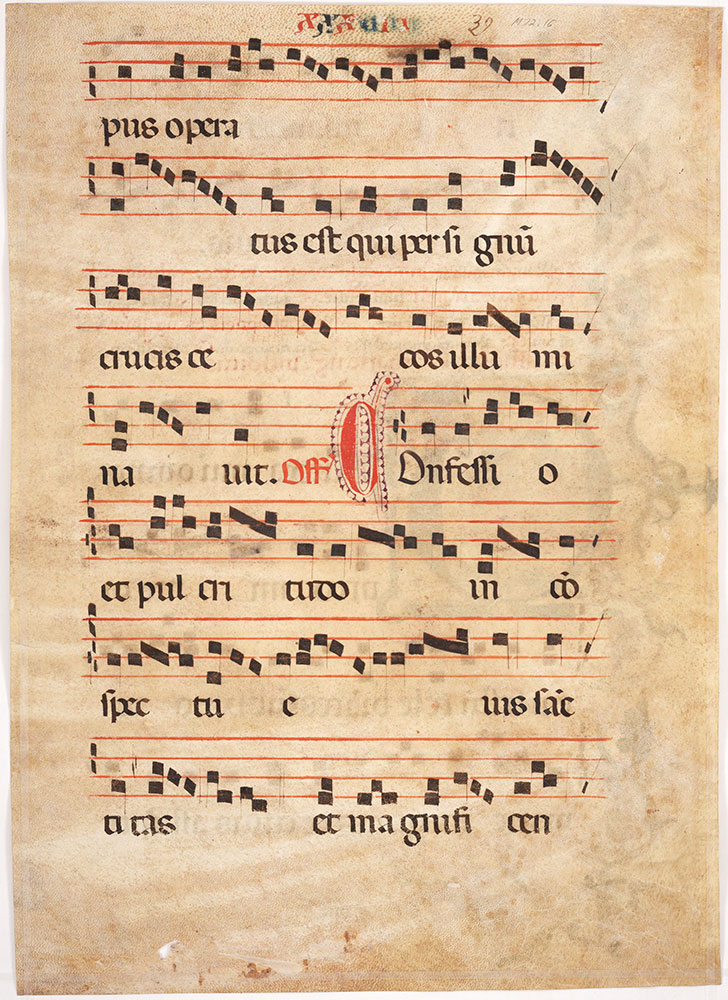 39 M72:16
pus opera
tus est qui per si gnū
crucis ce cos illu mi
na vit. Off Onfessi o
et pul cri tudo in cō
spec tu e ius sāc
ti tas et ma gnifi cen